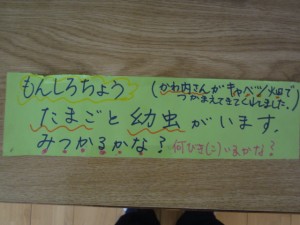 もんしろちょう
(かわ内さんがキャベツ畑で
つかまえてきてくれました。)
たまごと幼虫がいます。
みつかるかな?
何びき(こ)いるかな?